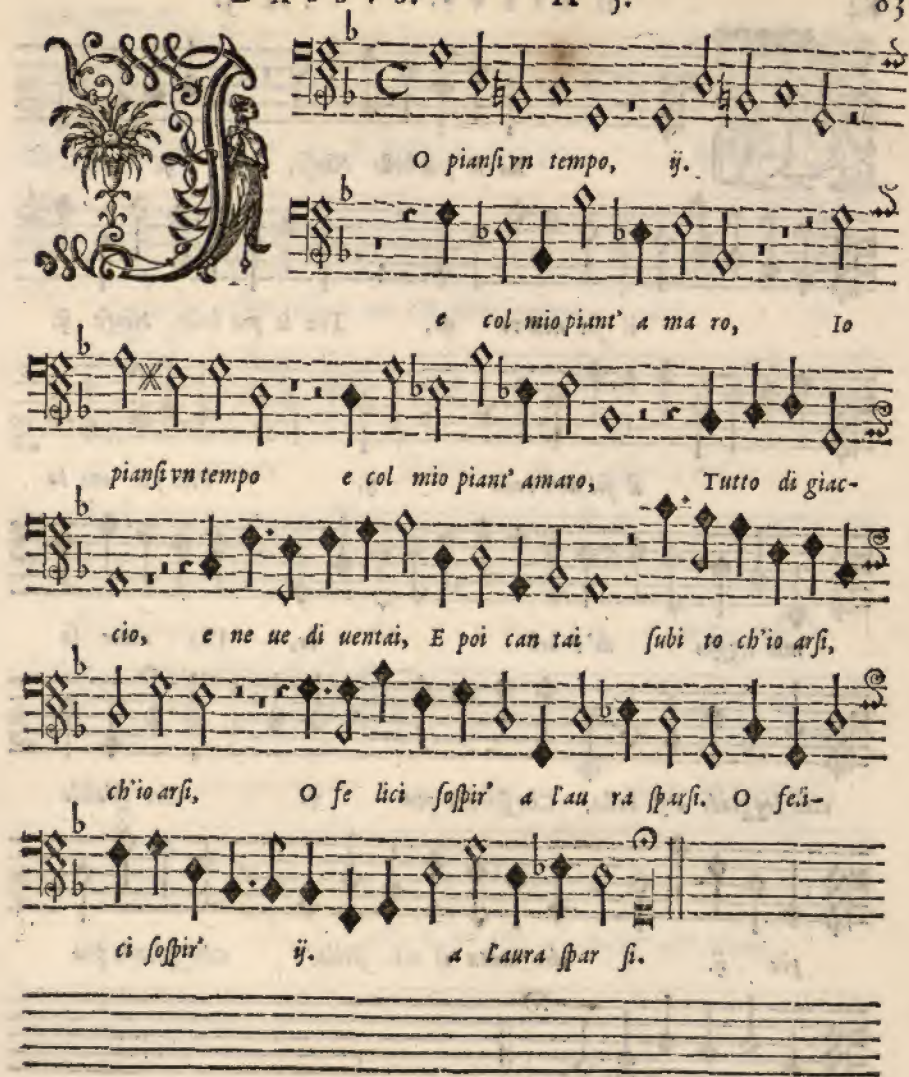 83
O pianſi vn tempo, ij.
e col mio piant' a ma ro, Io
pianſi vn tempo e col mio piant' amaro, Tutto di giac-
cio, e ne ue di uentai, E poi can tai ſubi to ch'io arſi,
ch'io arſi, O fe lici ſoſpir' a l'au ra ſparſi. O feli-
ci ſoſpir' ij. a l'aura ſpar ſi.